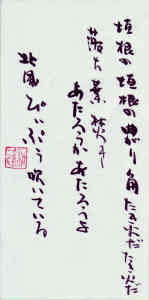 垣根の垣根の曲り角たき火だたき火だ
落ち葉焚き
あたろうかあたろうよ
北風ぴいぷう吹いている